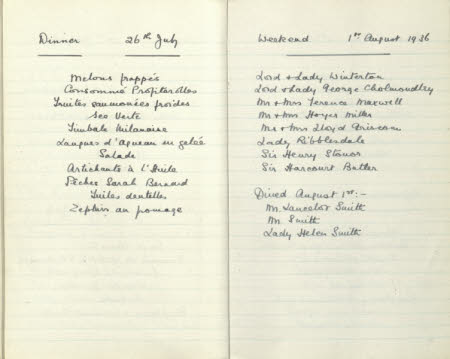 Dinner 26th July
Melons frappés
Consommé Profiterolles
Truites saumonées froides
Sce Verte
Timbale Milanaise
Langues d'agneau en gelée
Salade
Artichauts à l'Huile
Pêches Sarah Bernard
Tuiles dentelles
Zephirs au fromage
Weekend 1st August 1936
Lord & Lady Winterton
Lord & Lady George Cholmondley
Mr & Mrs Terence Maxwell
Mr & Mrs Hoyes Miller
Mr & Mrs Lloyd
Lady Ribblesdale
Sir Henry
Sir Harcourt Butler
Dined August 1st:-
Mr Lancelot Smith
Mr Smith
Lady Helen Smith